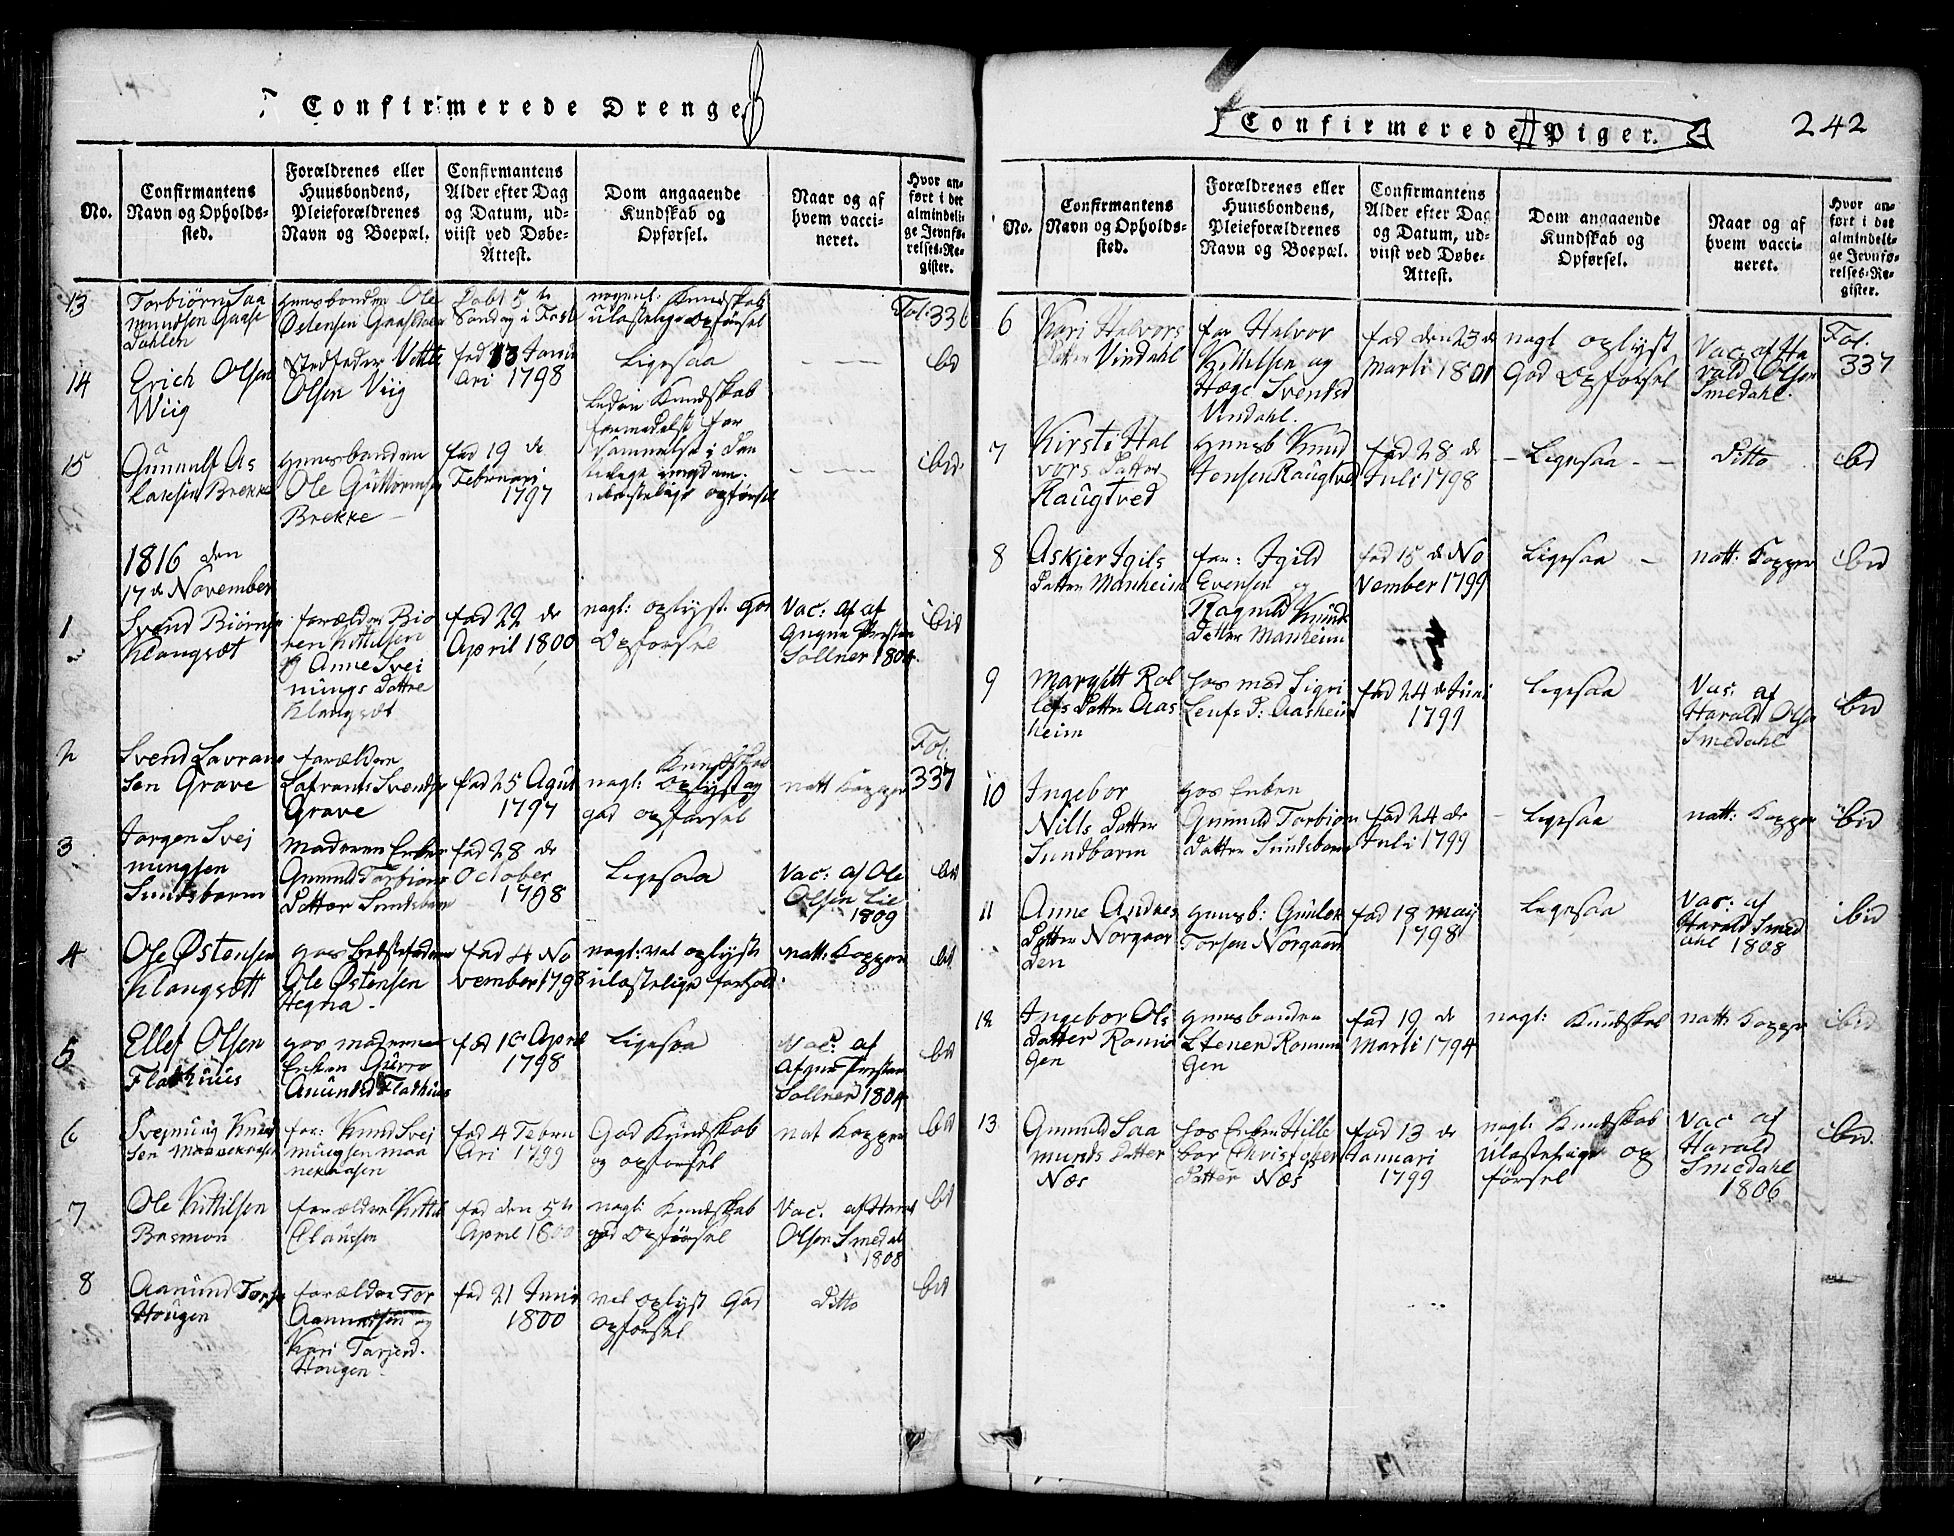 Confirmerede Drenge
No.
Confirmantens
Navn og Opholds-
sted.
Forældrenes eller
Huusbondens,
Pleieforældrenes
Navn og Boepæl.
Confirmantens
Alder efter Dag
og Datum, ud-
viist ved Døbe-
Attest.
Dom angaaende
Kundskab og
Opførsel.
Naar og af
hvem vacci-
neret.
Hvor an-
ført i det
almindeli-
ge Jevnfø-
relses-Re-
gister.
13
Torbiørn Saa
mundsen Gaase
Dahlen
Huusbonden Ole
Østensen Gaasedalen
Døbt 5 te
Søndag i Faste
nogenl: Kundskab
ulastelige Opførsel
Fol: 336
14
Erich Olsen
Wiig
Stedfader Vetle
Olsen Viig
fød 13 Janu
ari 1798
Ligesaa
ibd
15
Gunnulf As
lacsen Brekke
Huusbonden
Ole Guttormsen
Brekke
fød 19 de
Februari
1797
Liden Kundskab
formedelst for
sømmelse i den
ulastelige opførsel
ibid
1816 den
17de November
1
Svend Biørns
Klangsæt
forælder Biø
ren Kittilsen
og Anne Svei
nungs Dattre
Klangsæt
fød 22 de
April 1800
nogl: oplyst. God
Opførsel
Vac: af af
Sollner 1804.
ibid
2
Svend Lavrans
sen Grave
forælder
Lafrants Svends
Grave
fød 25 Agust
1797
nogl: Kundskab
Oplyst og
god opførsel
natt Kopper
Fol:
337
3
Jørgen Svej
nungsen
Sundsbarm
Moderen Enken
Gunild Torbiøns
Datter Sundsbarm
fød 28 de
October
1798
Ligesaa
Vac: af Ole
Olsen Lie
1809
ibd
4
Ole Østensen
Klangsett
hos Bedstefaderen
Ole Østensen
Hegna
fød 4 No
vember 1798
nogl: vel oplyst
ulastelige forhold
natt: Kopper
ibd
5
Ellef Olsen
Flathuus
hos moderen
Enken Guro
Amunds Flathuus
fød 10 April
1798
Ligesaa
Vac: af
Sollner 1804
ibd
6
Svejnung Knud
sen Maanekaasen
for: Knud Svej
nungsen maa
nekaasen
fød 4 Febru
ari 1799
God Kundskab
og opførsel
nat Kopper
ibd
7
Ole Kittilsen
Bremon
forælder Kittil
Clausen
fød den 5te
April 1800
nogl: Kundskab
god Opførsel
Vac: af Harald
Olsen Smedal
1808
ibd
8
Aanund Torsen
Haugen
forælder Tor
Aanundsen og
Kari Tarjed.
Haugen
fød 21 Juni
1800
vel oplyst God
Opførsel
Ditto
ibd
Confirmerede Piger.
242
No.
Confirmantens
Navn og Opholds-
sted.
Forældrenes eller
Huusbondens,
Pleieforældrenes
Navn og Boepæl.
Confirmantens
Alder efter Dag
og Datum, ud-
viist ved Døbe-
Attest.
Dom angaaende
Kundskab og
Opførsel.
Naar og af
hvem vacci-
neret.
Hvor an-
ført i det
almindeli-
ge Jevnfø-
relses-Re-
gister.
6
Kari Halvors
Datter Vindahl
for Halvor
Kittilsen og
Hæge Svends d
Vindahl.
fød den 23 de
Marti 1801
nogl oplyst
God Opførsel
Vac af Ha
rald Olsen
Smedahl.
Fol.
337
7
Kirsti Hal
vors Datter
Raugtved
Huusb Knud
Jonsen Raugtved
fød 28 de
Juli 1798
Ligesaa
Ditto
ibd
8
Askjer Igils
Datter Manheim
for: Igild
Evensen og
Ragnild Knuds
Datter Manheim
fød 15 de No
vember 1799
Ligesaa
natt: Kopper
ibid
9
Margitt Rol
lefs Datter Aas
heim
hos mod Sigri
Leufs d: Aasheim
fød 24 de Juni
1799
Ligesaa
Vac: af
Harald Olsen
Smedahl
ibid
10
Ingebor
Nills Datter
Sundbarm
hos Enken
Gunild Torbiøn
Datter Sundsbarm
fød 24 de
Juli 1799
Ligesaa
natt: Kopper
ibid
11
Anne Andres
Datter Norgaar
den
Huusb: Gunlek
Torsen Norgaarn
fød 18 may
1798
Ligesaa
Vac: af
Harald Smed
dahl 1808
ibid
12
Ingebor Ols
Datter Romu
gen
Huusbonden
Stener Romun
gen
fød 19 de
Marti 1794
nogl: Kundskab
natt: Kopper
ibid
13
Gunild Saa
munds Datter
Næs
hos Enken Hille
bor Christopher
Datter Næs
fød 13 de
Januari
1799
nogl: Kundskab
ulastelige op
førsel
Vac af
Harald
Smedahl
1806
ibid